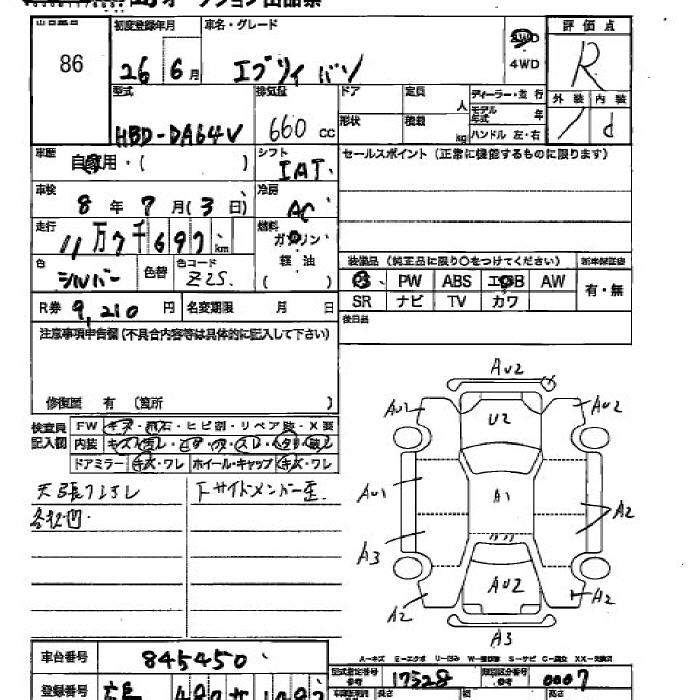 86
初度登録年月
車名・グレード
26 6 月
エブリィ バン
2WD
4WD
評価点
R
外装 内装
1 d
型式
HBD-DA64V
排気量
660 cc
ドア
形状
定員 人
積載 kg
ディーラー・並行
モデル年式 年
ハンドル 左・右
車歴
自家用・( )
シフト
IAT
セールスポイント (正常に機能するものに限ります)
車検
8 年 7 月 ( 3 日)
冷房
AC
走行
11万7千697 km
燃料
ガソリン
軽油
( )
色
シルバー
色替
色コード
Z2S
装備品 (純正品に限り○をつけてください)
新車保証書
PS PW ABS エアB AW
SR ナビ TV カワ
有・無
R券 9,210 円
名変期限 月 日
後日品
注意事項申告欄 (不具合内容等は具体的に記入して下さい)
修復歴 有 (箇所 )
検査員記入欄
FW キズ・飛石・ヒビ割・リペア跡・X要
内装
ドアミラー キズ・ワレ
ホイール・キャップ キズ・ワレ
AU2
AU2
AU2
U2
AU1
A1
A2
A3
AU2
A2
A2
A3
A-キズ
車台番号
845450
型式指定番号
17528
類別区分番号
0007
登録番号